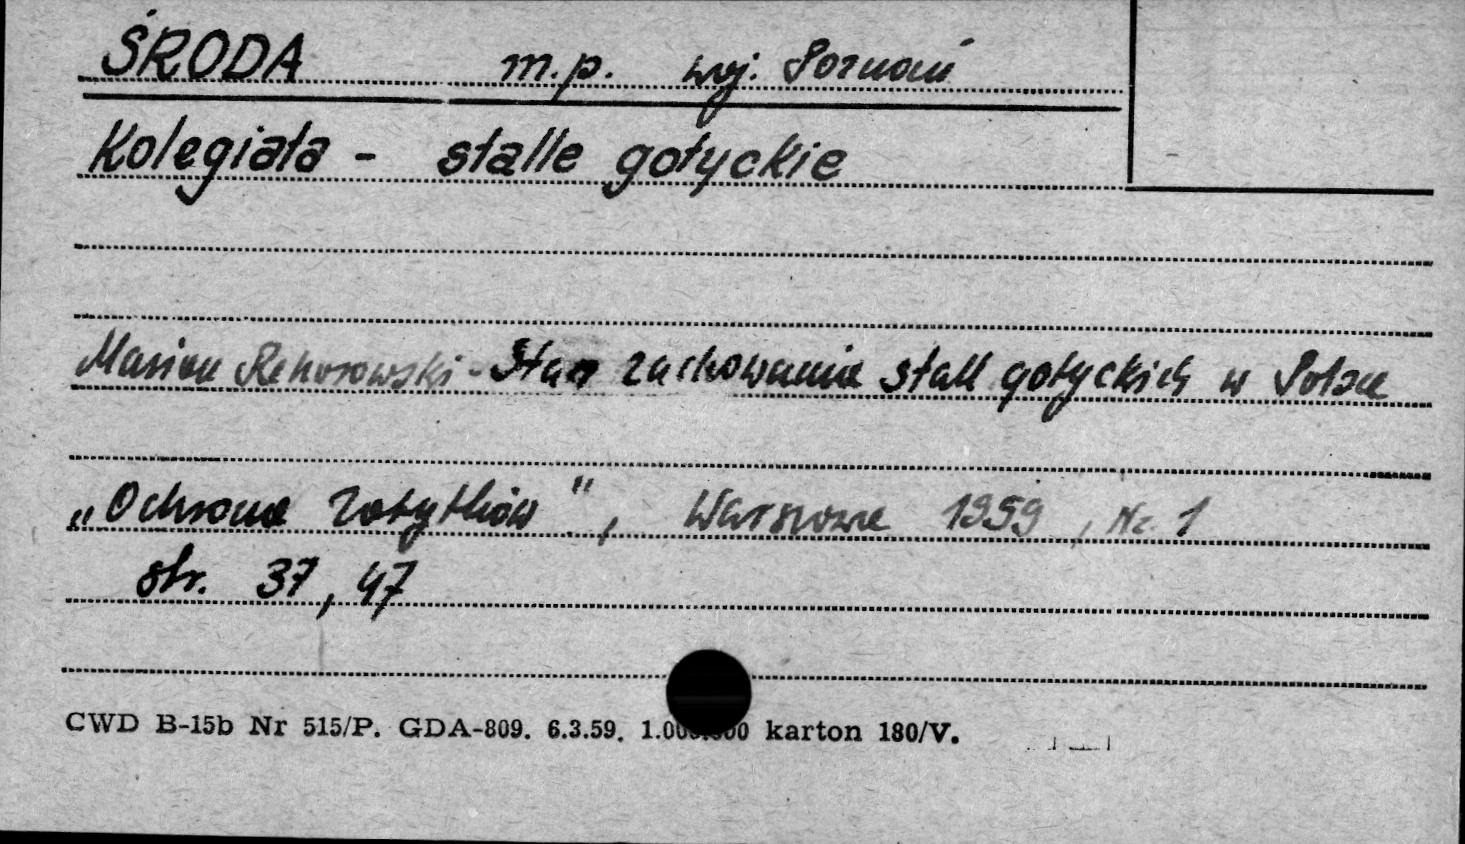 ŚRODA m.p. woj. Poznań
Kolegiata - stalle gotyckie
Marian Rehorowski - Stan zachowania stall gotyckich w Polsce
„Ochrona Zabytków", Warszawa 1959, Nr. 1
str. 37, 47
CWD B-15b Nr 515/P. GDA-809. 6.3.59. 1.000.000 karton 180/V.